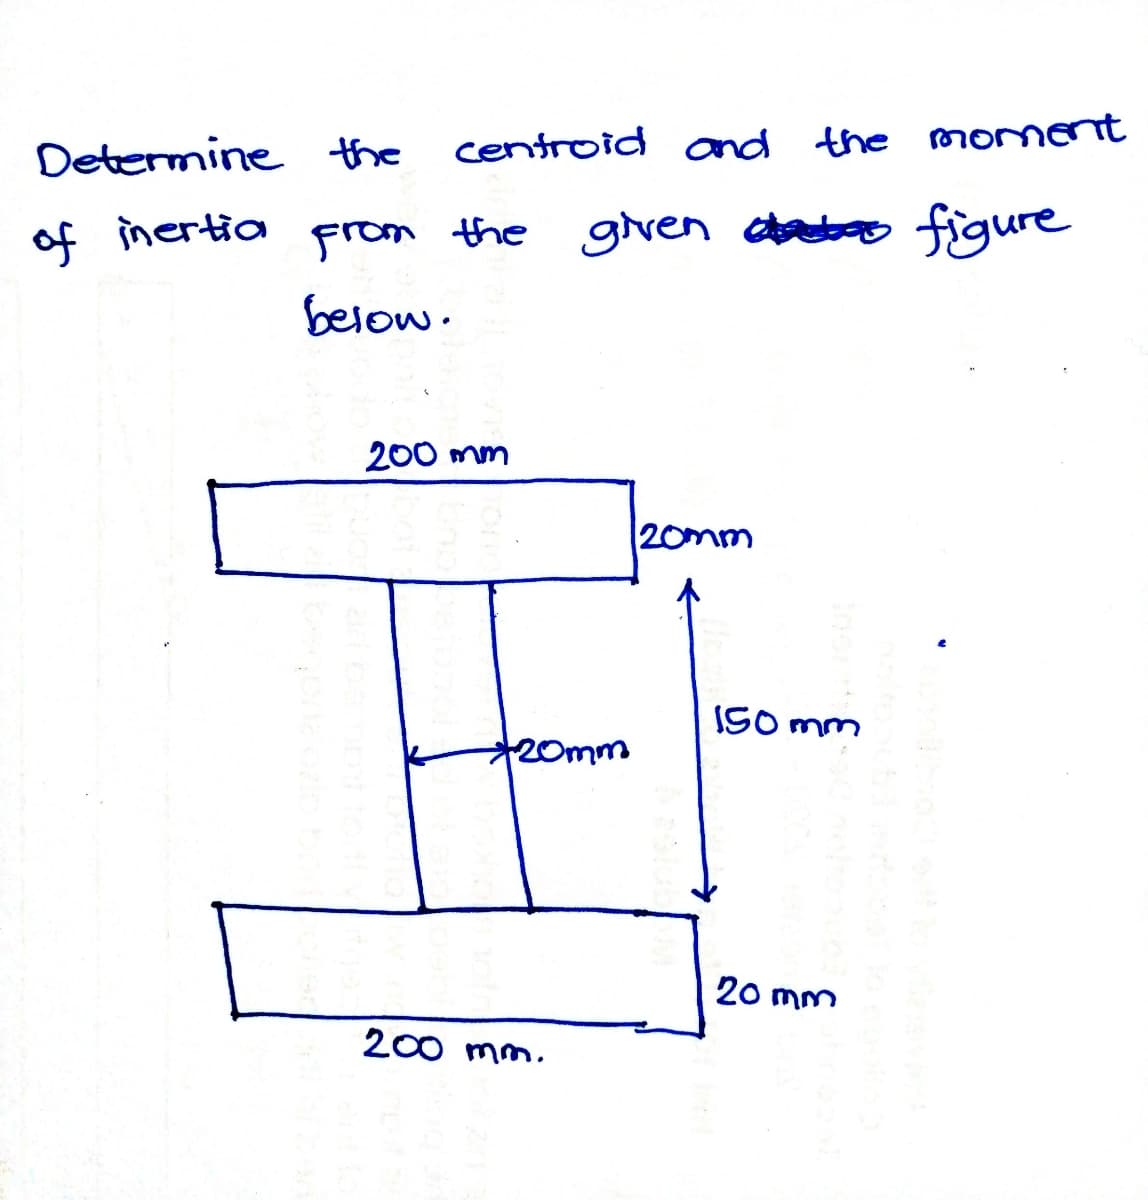 Determine the centroid and the moment
of inertia from the given figure
below.
200 mm
20mm
150 mm
20mm
20 mm
200 mm.